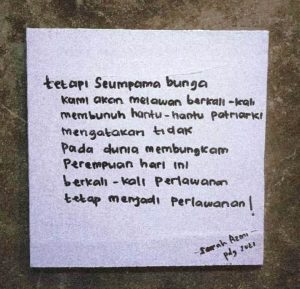 tetapi Seumpama bunga
kami akan melawan berkali-kali
membunuh hantu-hantu patriarki
mengatakan tidak
pada dunia membungkam
Perempuan hari ini
berkali-kali Perlawanan
tetap menjadi Perlawanan!
-Sarah Azmi-
pdg 2021